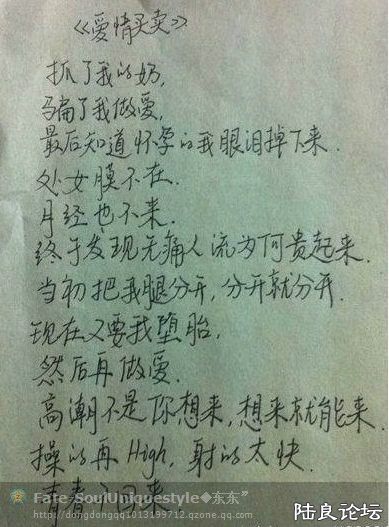 《爱情买卖》
抓了我的奶，
骗了我做爱，
最后知道怀孕的我眼泪掉下来．
处女膜不在．
月经也不来．
终于发现无痛人流为何贵起来．
当初把我腿分开，分开就分开．
现在又要我堕胎，
然后再做爱．
高潮不是你想来，想来就能来．
操的再High，射的太快．
Fate-SoulUniquestyle◆东东”
http://dongdongqq1013199712.qzone.qq.com
陆良论坛